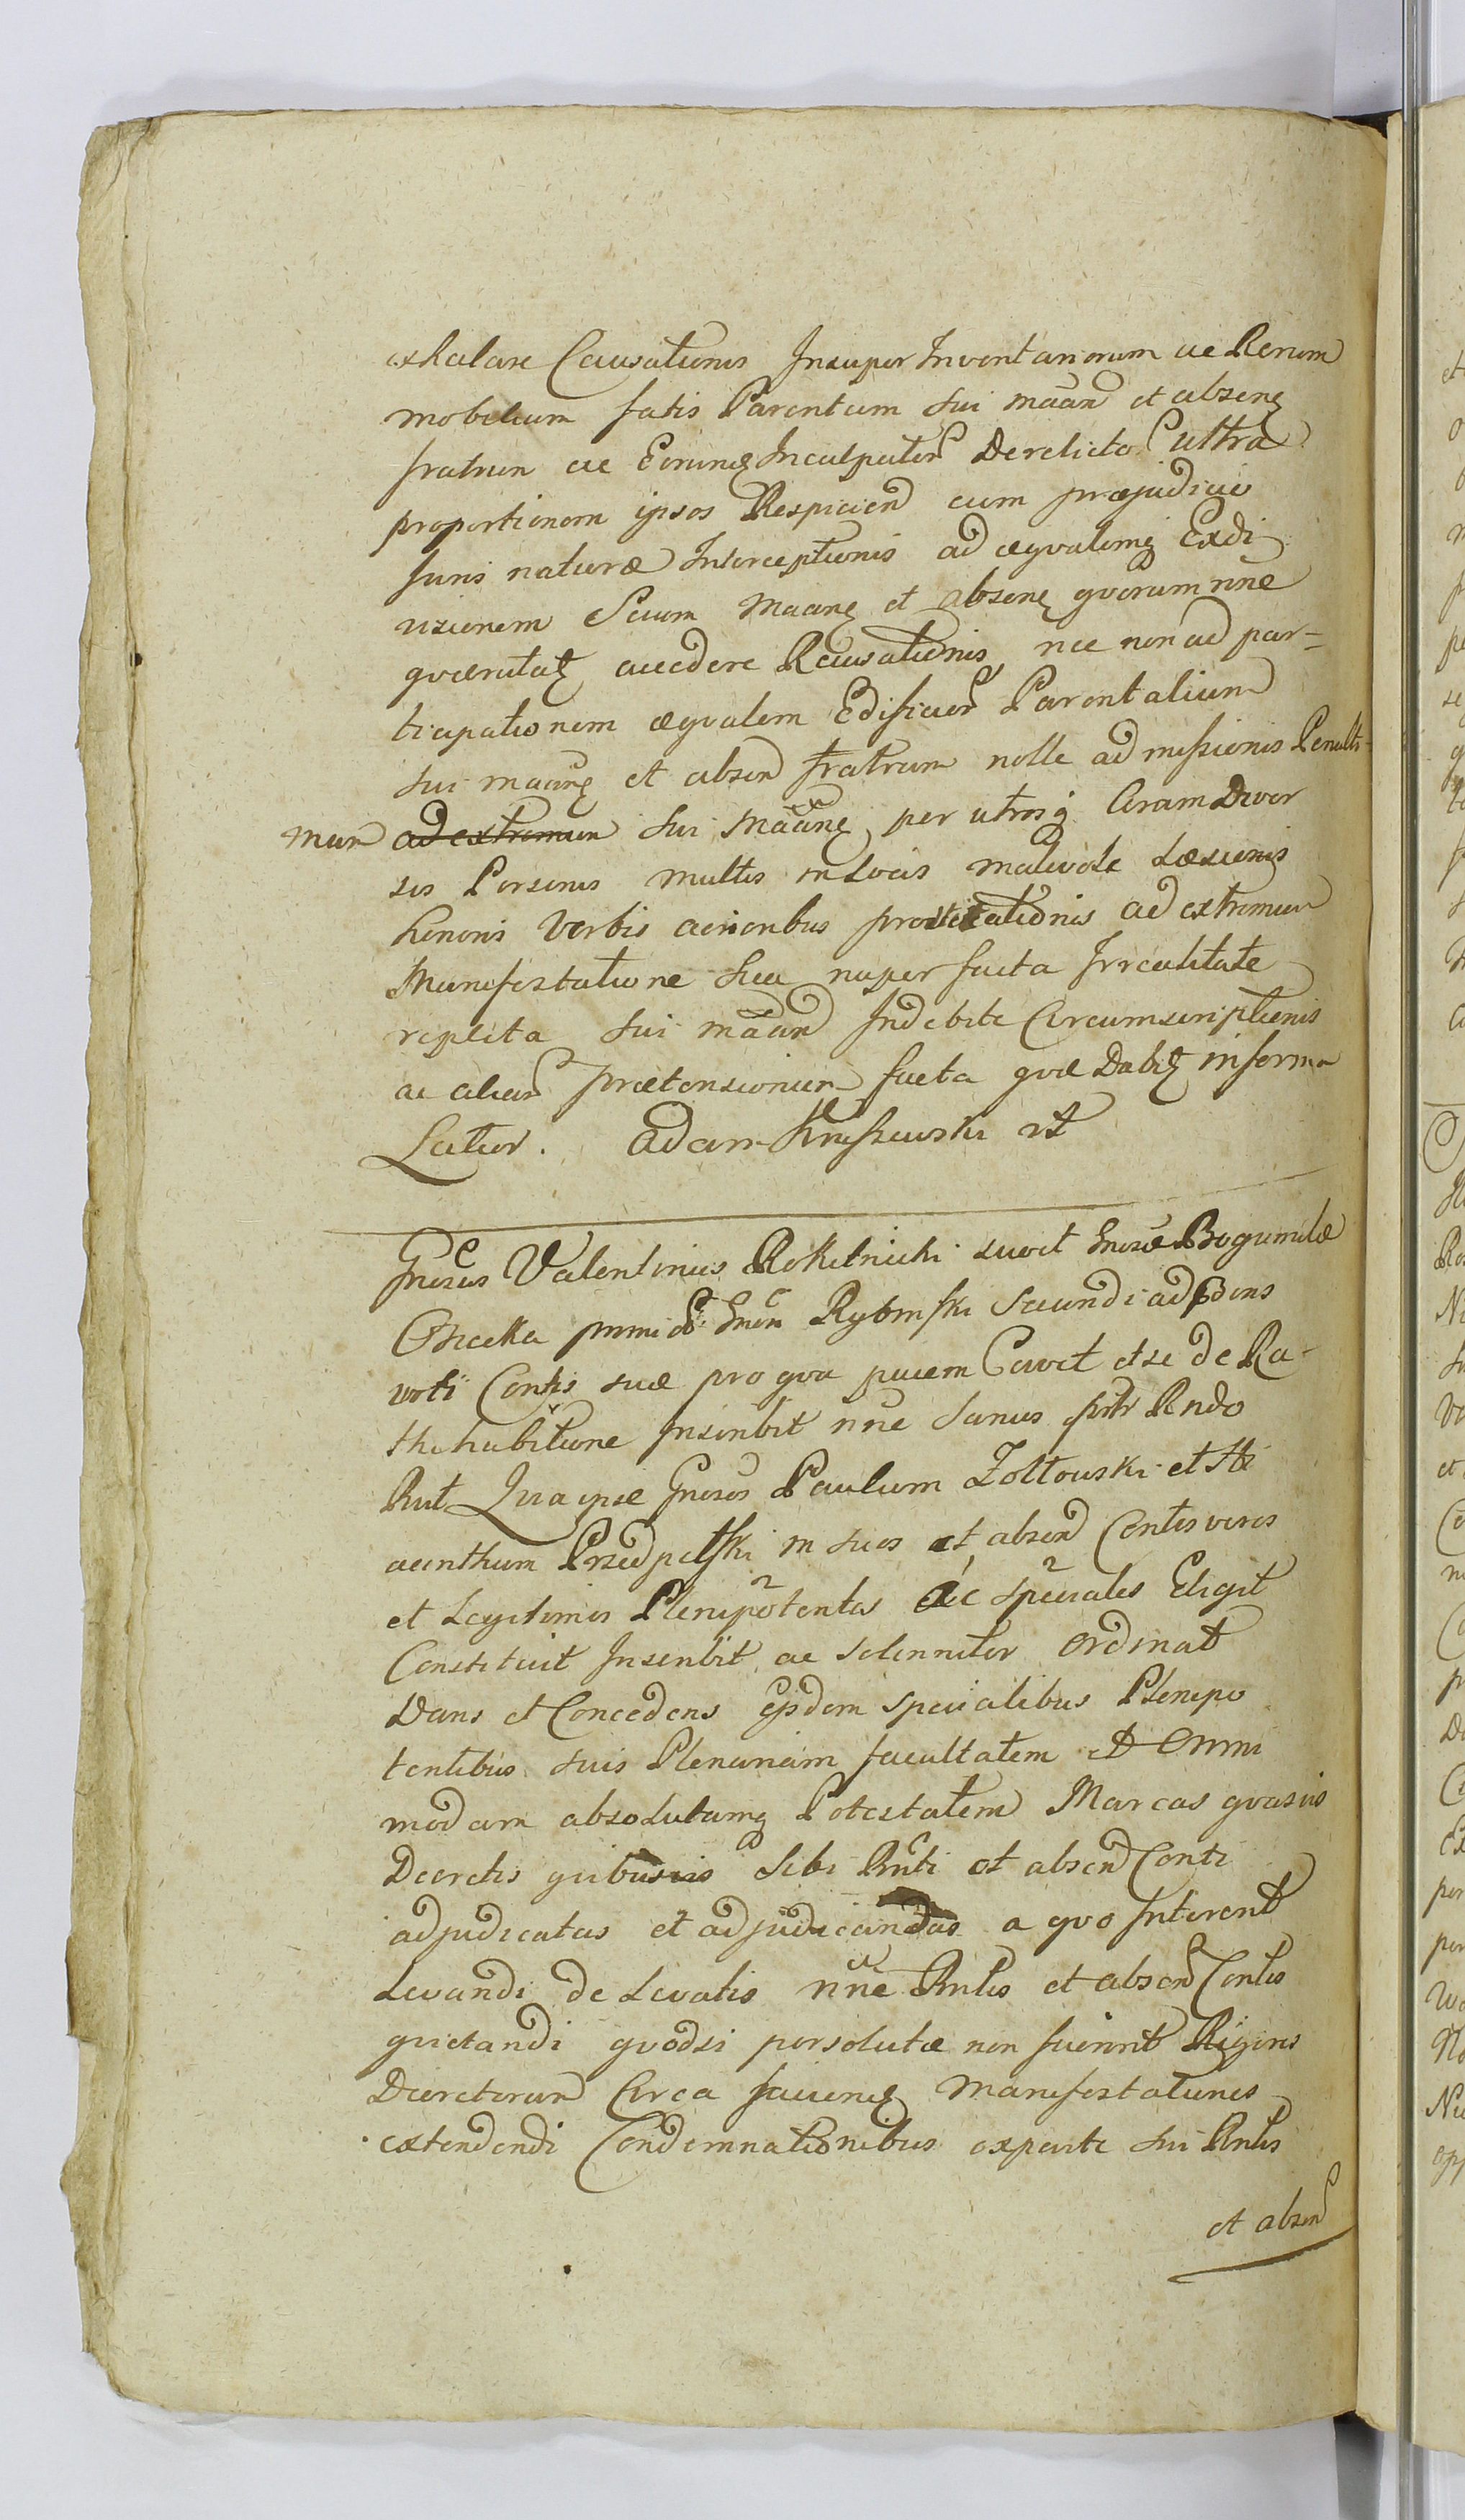 exhalare Causationis Insuper Inventariorum ac Rerum
mobilium fatis Parentum sui maãn et absenq
fratrum ac Eorumq Inculpator Derelictor ultra
proportionem ipsos Respicien cum præjudicio
Juris naturæ Interceptionis ad æqvalemq Exdi
visionem Secum maanq et absenq qvorum nne
accedere Recusationis nec non ad par-
ticipationem æqvalem Edificior Parentalium
sui maanq et absen fratrum nolle admissionis Penulti-
mum ad extremum sui maanq per utrosq Coram Diver
sis Personis multis in Locis malevole Læsionis
honoris verbis acrioribus ad extremum
Manifestatione sua nuper facta Irrealitate
repleta sui maan Indebite Circumscriptionis
ac aliar prætensionum facta qvæ Dabit informa
Latior. Adam Kruszewski mt
Gnosus Valentinus Rokitnicki suo et Gnosæ Bogumilæ
primi Gnosi Rybinski Secundi ad præns
voti Contis suæ pro qva pacem Cavet et se de Ra-
thihabitione Inscribit nne Sanus
Rnt Qvia ipse Gnosos Paulum Zołtowski et Hi
acinthum Przedpełski in suos et absen Contis veros
et Legitimos Plenipotentes ac speciales Eligit
Constituit Inscribit ac solenniter ordinat
Dans et Concedens ejsdem specialibus Plenipo
tentibus suis Plenariam facultatem et Omni
modam absolutamq Potestatem Marcas qvasvis
Decretis qvibusvis sibi Rnti et absen Conti
adjudicatas et adjudicandas a qvo Interent
Levandi de Levatis nne Rntis et absen Contis
qvietandi qvodsi persolutæ non fuerint Rigores
Decretorum Circa facienq manifestationes
extendendi Condemnationibus exparte sui Rntis
et absen